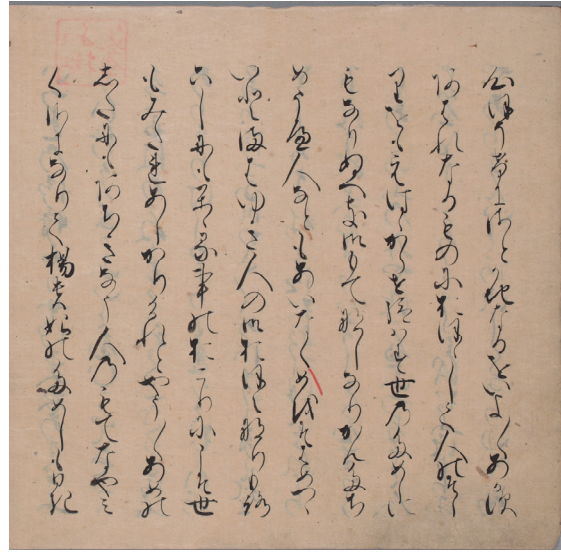 心ほそけにさとかちなるをいよ／＼あかす
あはれなるものにおもほして人のそし
りをもえはゝからせ給はす世のためしに
もなりぬへき御もてなしなりかんたち
めうへ人なともあいなくめをそはめつゝ
いとまはゆき人の御おほえなりもろ
こしにもかゝる事のおこりにこそ世
もみたれあしかりけれとやう／＼あめの
したにもあちきなう人のもてなやみ
くさになりて楊貴妃のためしもひき